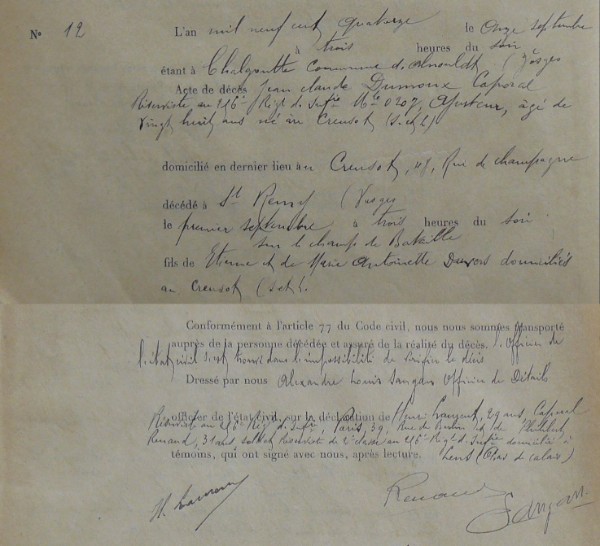 N° 12
L'an mil neuf cent quatorze le Onze septembre
à trois heures du soir
étant à commune d' (Vosges
Acte de décès Jean Claude Dumoux Caporal
Réserviste au Régt d. Inftie Mle 0207, Ajusteur, âgé de
Vingt huit ans né au Creusot (S. et L)
domicilié en dernier lieu au Creusot, Rue de champagne
décédé à St Remy (Vosges
le premier septembre à trois heures du soir
sur le champ de Bataille
fils de Etienne et de Marie Antoinette domiciliés
au Creusot (S et L.
Conformément à l'article 77 du Code civil, nous nous sommes transporté
auprès de la personne décédée et assuré de la réalité du décès. l'Officier de
l'état civil s'est trouvé dans l'impossibilité de vérifier le décès
Dressé par nous Alexandre Louis Officier de Détails
officier de l'état civil, sur la déclaration de Henri 29 ans, Caporal
Réserviste au Régt d. Inftie, Paris, 39, Rue de et de Philibert
Renaud, 31 ans soldat Réserviste de 2e classe au Régt d. Inftie domicilié à
témoins, qui ont signé avec nous, après lecture. Lens (Pas de calais)
Renaud